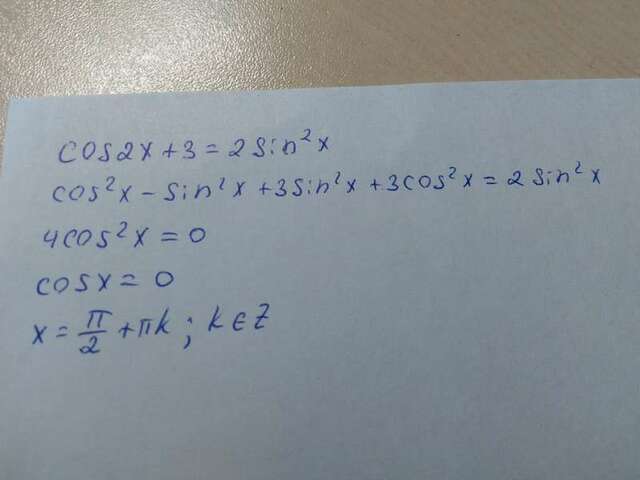 cos2x + 3 = 2sin²x
cos²x - sin²x + 3sin²x + 3cos²x = 2sin²x
4cos²x = 0
cosx = 0
x = π/2 + πk ; k ∈ Z